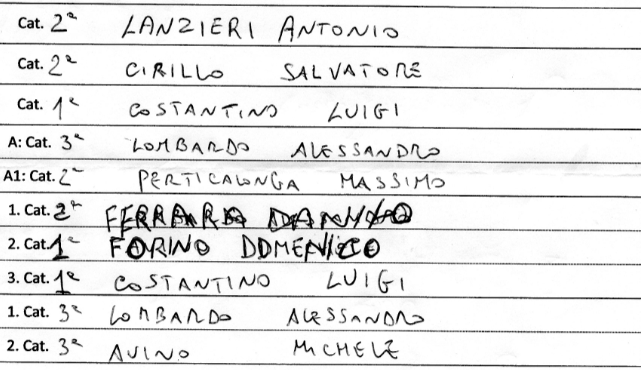 Cat. 2ª LANZIERI ANTONIO
Cat. 2ª CIRILLO SALVATORE
Cat. 1ª COSTANTINO LUIGI
A: Cat. 3ª LOMBARDO ALESSANDRO
A1: Cat. 2ª PERTICALONGA MASSIMO
1. Cat. 2ª FERRARO
2. Cat. 1ª FORINO DOMENICO
3. Cat. 1ª COSTANTINO LUIGI
1. Cat. 3ª LOMBARDO ALESSANDRO
2. Cat. 3ª AVINO MICHELE